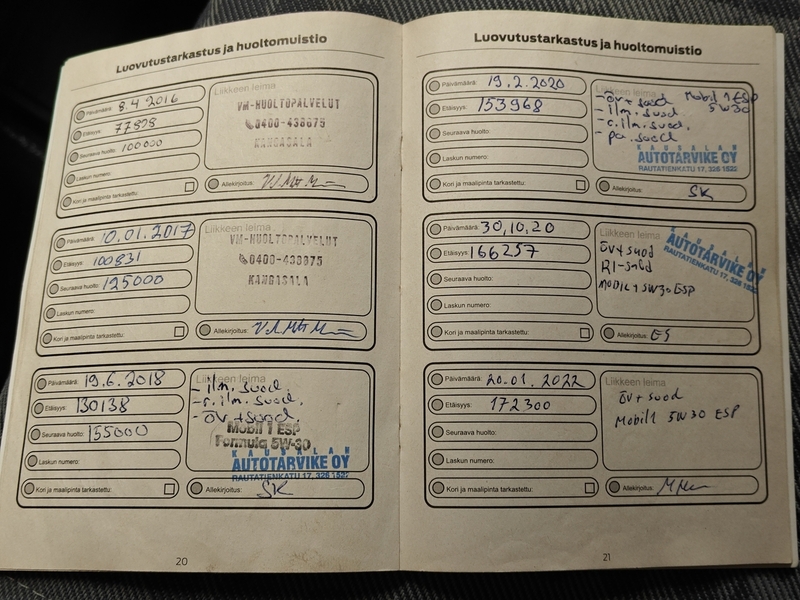 Luovutustarkastus ja huoltomuistio
Päivämäärä: 8.4 2016
Etäisyys:
Seuraava huolto: 100000
Laskun numero:
Kori ja maalipinta tarkastettu:
Liikkeen leima
VM-HUOLTOPALVELUT
0400-438675
KANGASALA
Allekirjoitus:
Päivämäärä: 10.01.2017
Etäisyys: 100831
Seuraava huolto: 125000
Laskun numero:
Kori ja maalipinta tarkastettu:
Liikkeen leima
VM-HUOLTOPALVELUT
0400-438675
KANGASALA
Allekirjoitus:
Päivämäärä: 19.6.2018
Etäisyys: 130138
Seuraava huolto: 155000
Laskun numero:
Kori ja maalipinta tarkastettu:
Liikkeen leima
- ilm. suod.
- r.ilm. suod.
- öv. + suod
Mobil 1 ESP
Formula 5W-30
KAUSALAN
AUTOTARVIKE OY
RAUTATIENKATU 17, 326 1522
Allekirjoitus: SK
20
Luovutustarkastus ja huoltomuistio
Päivämäärä: 19.2.2020
Etäisyys: 153968
Seuraava huolto:
Laskun numero:
Kori ja maalipinta tarkastettu:
Liikkeen leima
- öv + suod Mobil 1 ESP
- ilm. suod. 5W30
- r.ilm. suod.
- pa. suod
KAUSALAN
AUTOTARVIKE OY
RAUTATIENKATU 17, 326 1522
Allekirjoitus: SK
Päivämäärä: 30,10,20
Etäisyys: 166257
Seuraava huolto:
Laskun numero:
Kori ja maalipinta tarkastettu:
Liikkeen leima
öv + suod
RI-suod
MOBIL 1 5W30 ESP
KAUSALAN
AUTOTARVIKE OY
RAUTATIENKATU 17, 326 1522
Allekirjoitus: ES
Päivämäärä: 20.01.2022
Etäisyys: 172300
Seuraava huolto:
Laskun numero:
Kori ja maalipinta tarkastettu:
Liikkeen leima
öv + suod
Mobil1 5W30 ESP
Allekirjoitus:
21